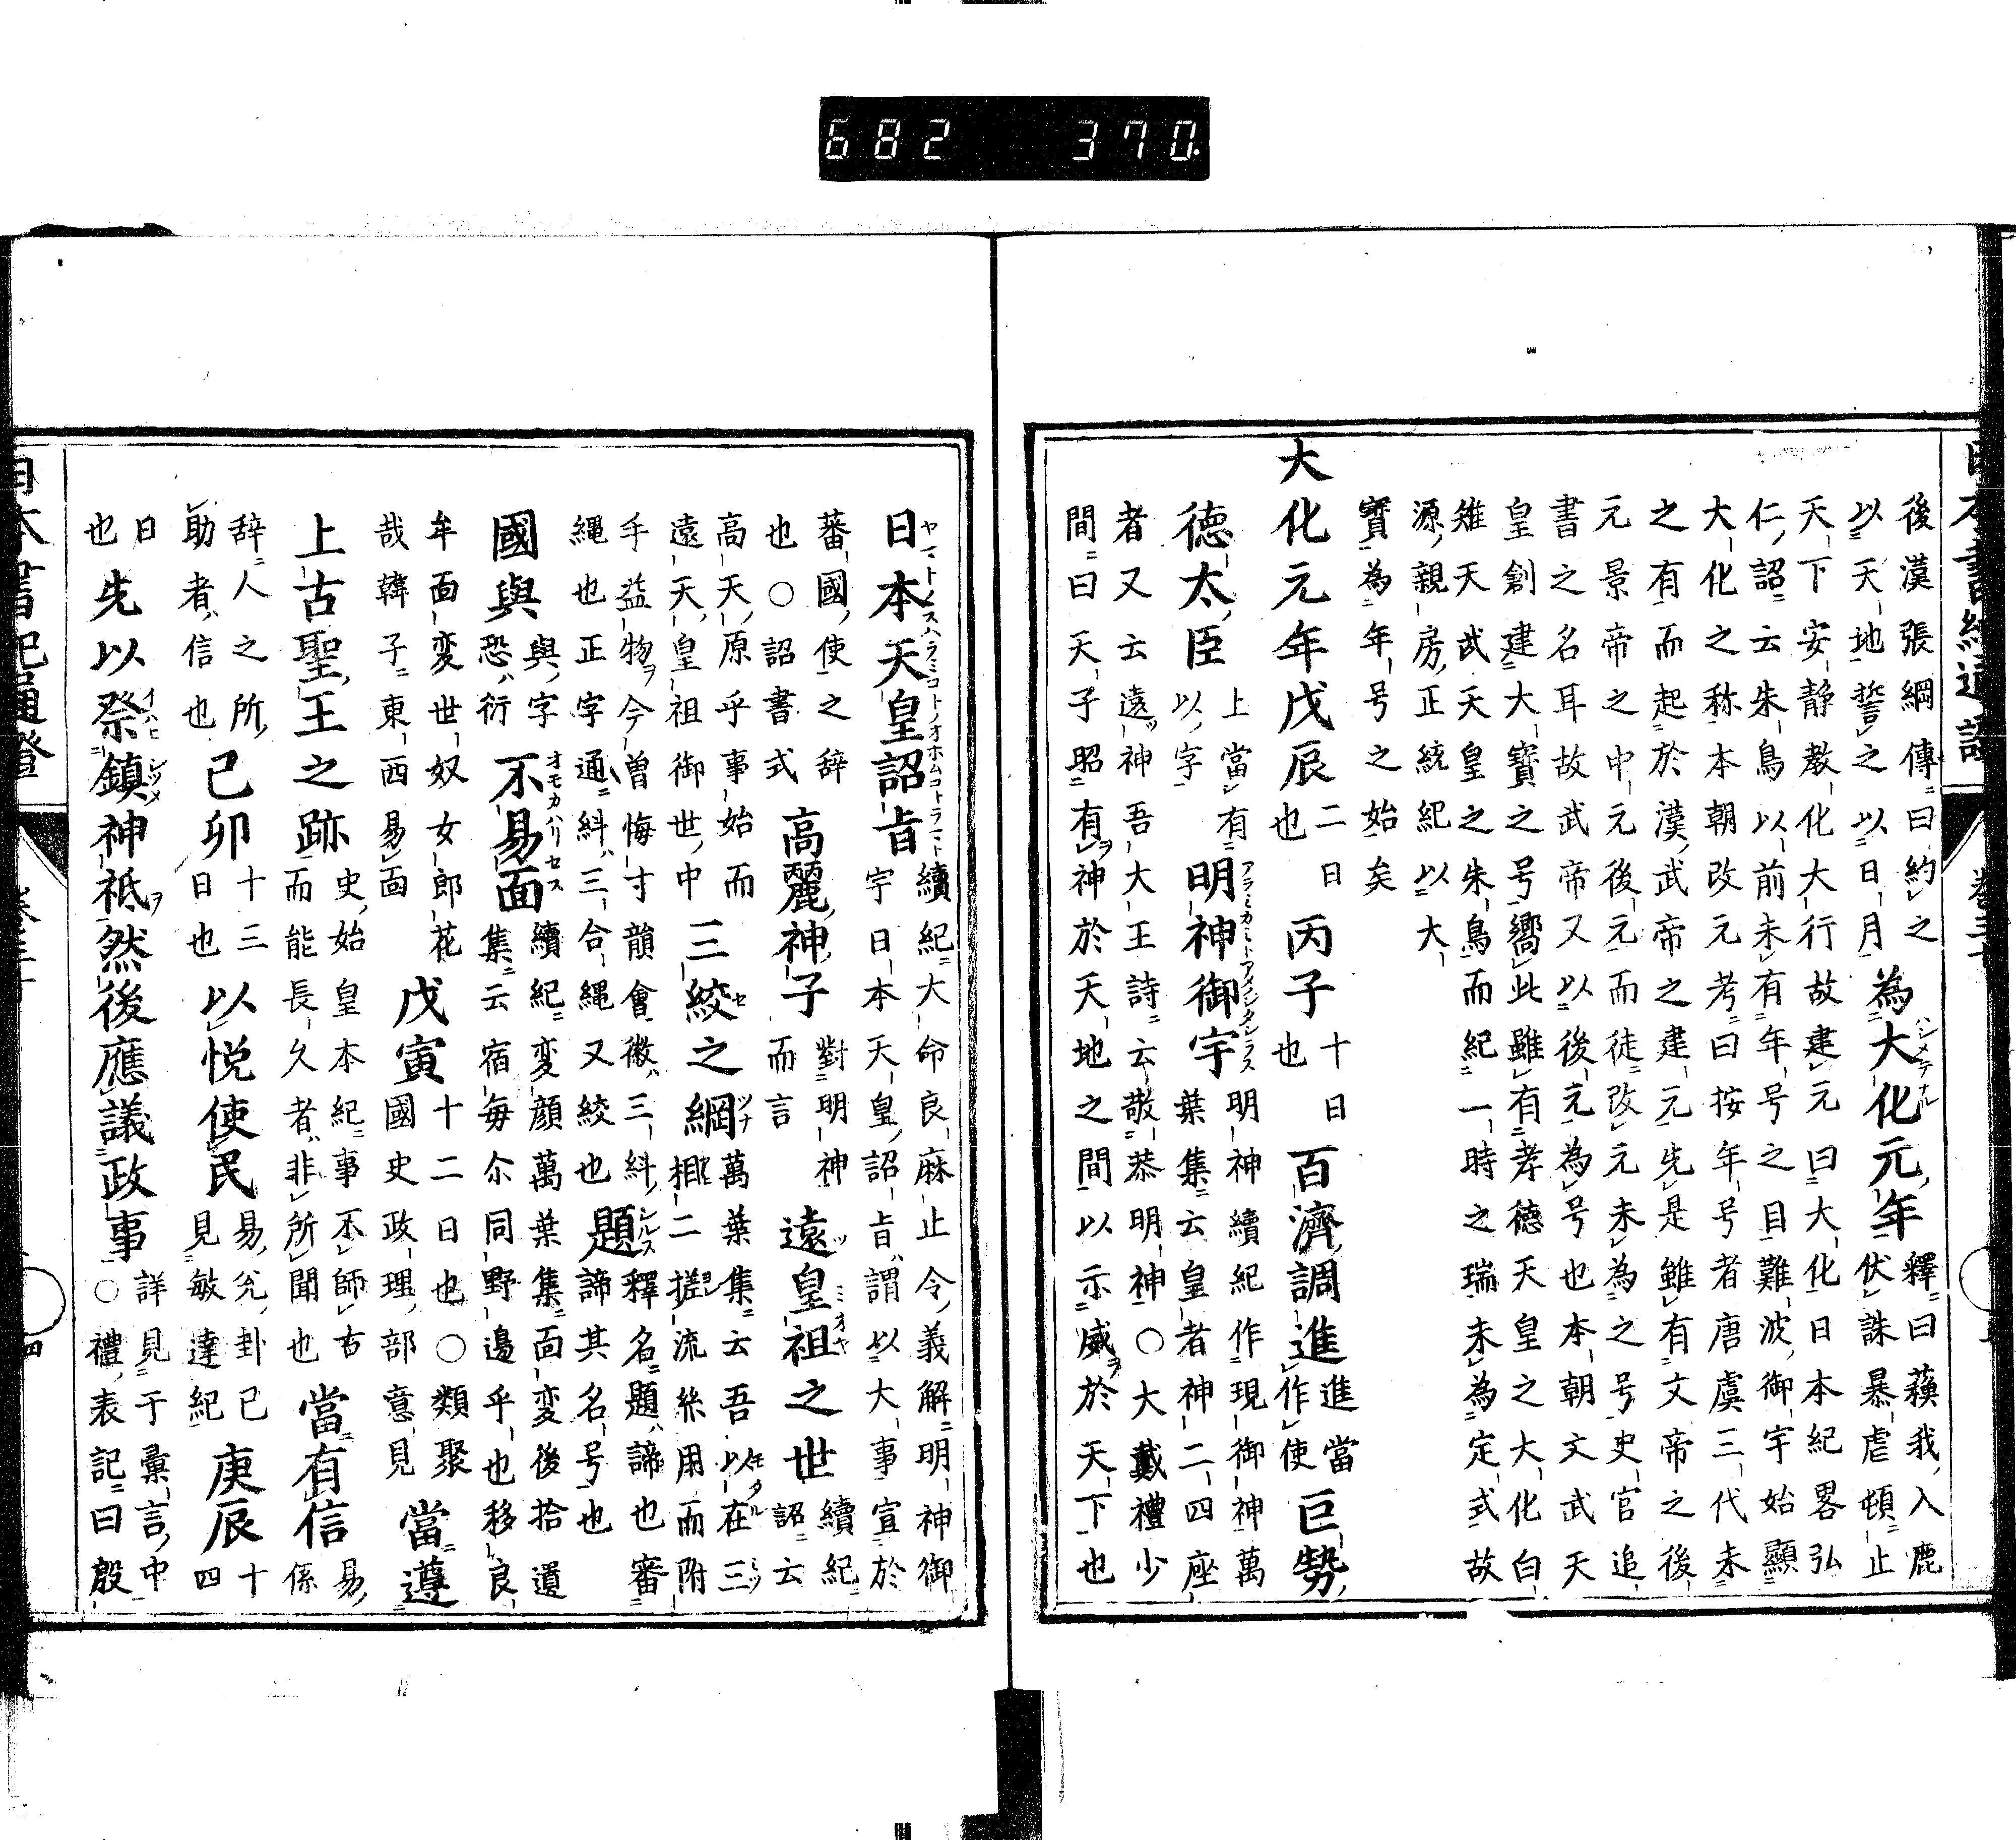 後漢張綱傳曰約之
以天地誓之以日月
為大化元年
釋曰蘓我入鹿
伏誅暴虐頓止
天下安静教化大行故建元曰大化日本紀畧弘
仁詔云朱鳥以前未有年号之目難波御宇始顯
大化之称本朝改元考曰按年号者唐虞三代未
之有而起於漢武帝之建元先是雖有文帝之後
元景帝之中元後元而徒改元未為之号史官追
書之名耳故武帝又以後元為号也本朝文武天
皇創建大寳之号嚮此雖有孝德天皇之大化白
雉天武天皇之朱鳥而紀一時之瑞未為定式故
源親房正統紀以大
寳為年号之始矣
大化元年戊辰
二日
也
丙子
十日
也
百濟調進
進當
作使
巨勢
德太臣
上當有
以字
明神御宇
明神續紀作現御神萬
葉集云皇者神二四座
者又云遠神吾大王詩云敬恭明神○大戴禮少
間曰天子昭有神於天地之間以示威於天下也
日本天皇詔旨
續紀大命良麻止令義解明神御
宇日本天皇詔旨謂以大事宣於
蕃國使之辞
也○詔書式
高麗神子
對明神
而言
遠皇祖之世
續紀
詔云
高天原乎事始而
遠天皇祖御世中
三絞之綱
萬葉集云吾以在三
相二搓流絲用而附
手益物今曽悔寸韻會徽三糾
縄也正字通糾三合縄又絞也
題
釋名題諦也審
諦其名号也
國與
與字
恐衍
不易面
續紀変顔萬葉集面変後拾遺
集云宿毎尒同野邊乎也移良
牟面変世奴女郎花
哉韓子東西易面
戊寅
十二日也○類聚
國史政理部意見
當遵
上古聖王之跡
史始皇本紀事不師古
而能長久者非所聞也
當有信
易係
辞人之所
助者信也
己卯
十三
日也
以悦使民
易兊卦已
見敏達紀
庚辰
十四
日
也
先以祭鎮神祇然後應議政事
詳見于彙言中
○禮表記曰殷